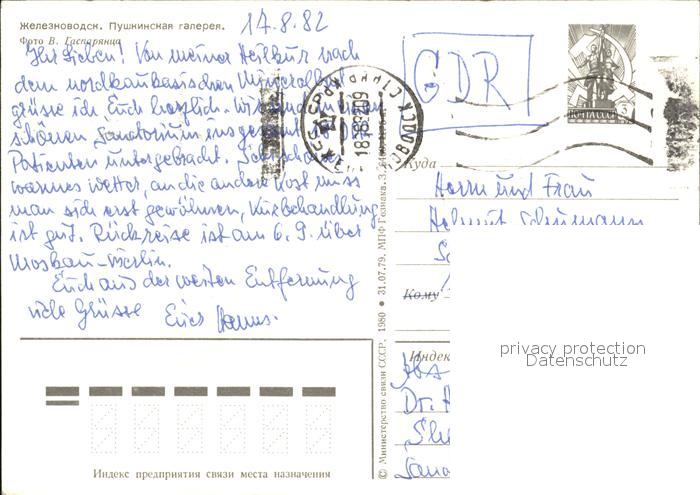 Железноводск. Пушкинская галерея.
Фото В. Гаспарянца
17.8.82
Ihr Lieben! Von meiner Heilkur nach
dem nordkaukasischen Mineralbad
grüsse ich Euch herzlich. Wir sind in einem
schönen Sanatorium insgesamt
Patienten untergebracht. Sehr schönes
warmes Wetter, an die andere Kost muss
man sich erst gewöhnen, Kurbehandlung
ist gut. Rückreise ist am 6.9. über
Moskau-Berlin.
Euch aus der weiten Entfernung
viele Grüsse Euer Hannes.
GDR
ПОЧТА СССР
Куда
Herrn und Frau
Helmut Schumann
Кому
Индекс
Abs
Dr. H
Sana
privacy protection
Datenschutz
© Министерство связи СССР, 1980 • 31.07.79. МПФ Гознака. З.
Индекс предприятия связи места назначения